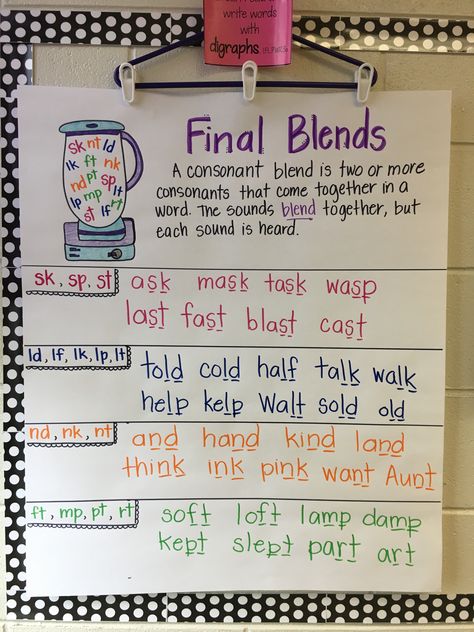 write words
with
digraphs
sk nt ld
lk ft nk
nd pt sp
lp mp lt
st lf rt
Final Blends
A consonant blend is two or more
consonants that come together in a
word. The sounds blend together, but
each sound is heard.
sk, sp, st
ask mask task wasp
last fast blast cast
ld, lf, lk, lp, lt
told cold half talk walk
help kelp Walt sold old
nd, nk, nt
and hand kind land
think ink pink want Aunt
ft, mp, pt, rt
soft loft lamp damp
kept slept part art